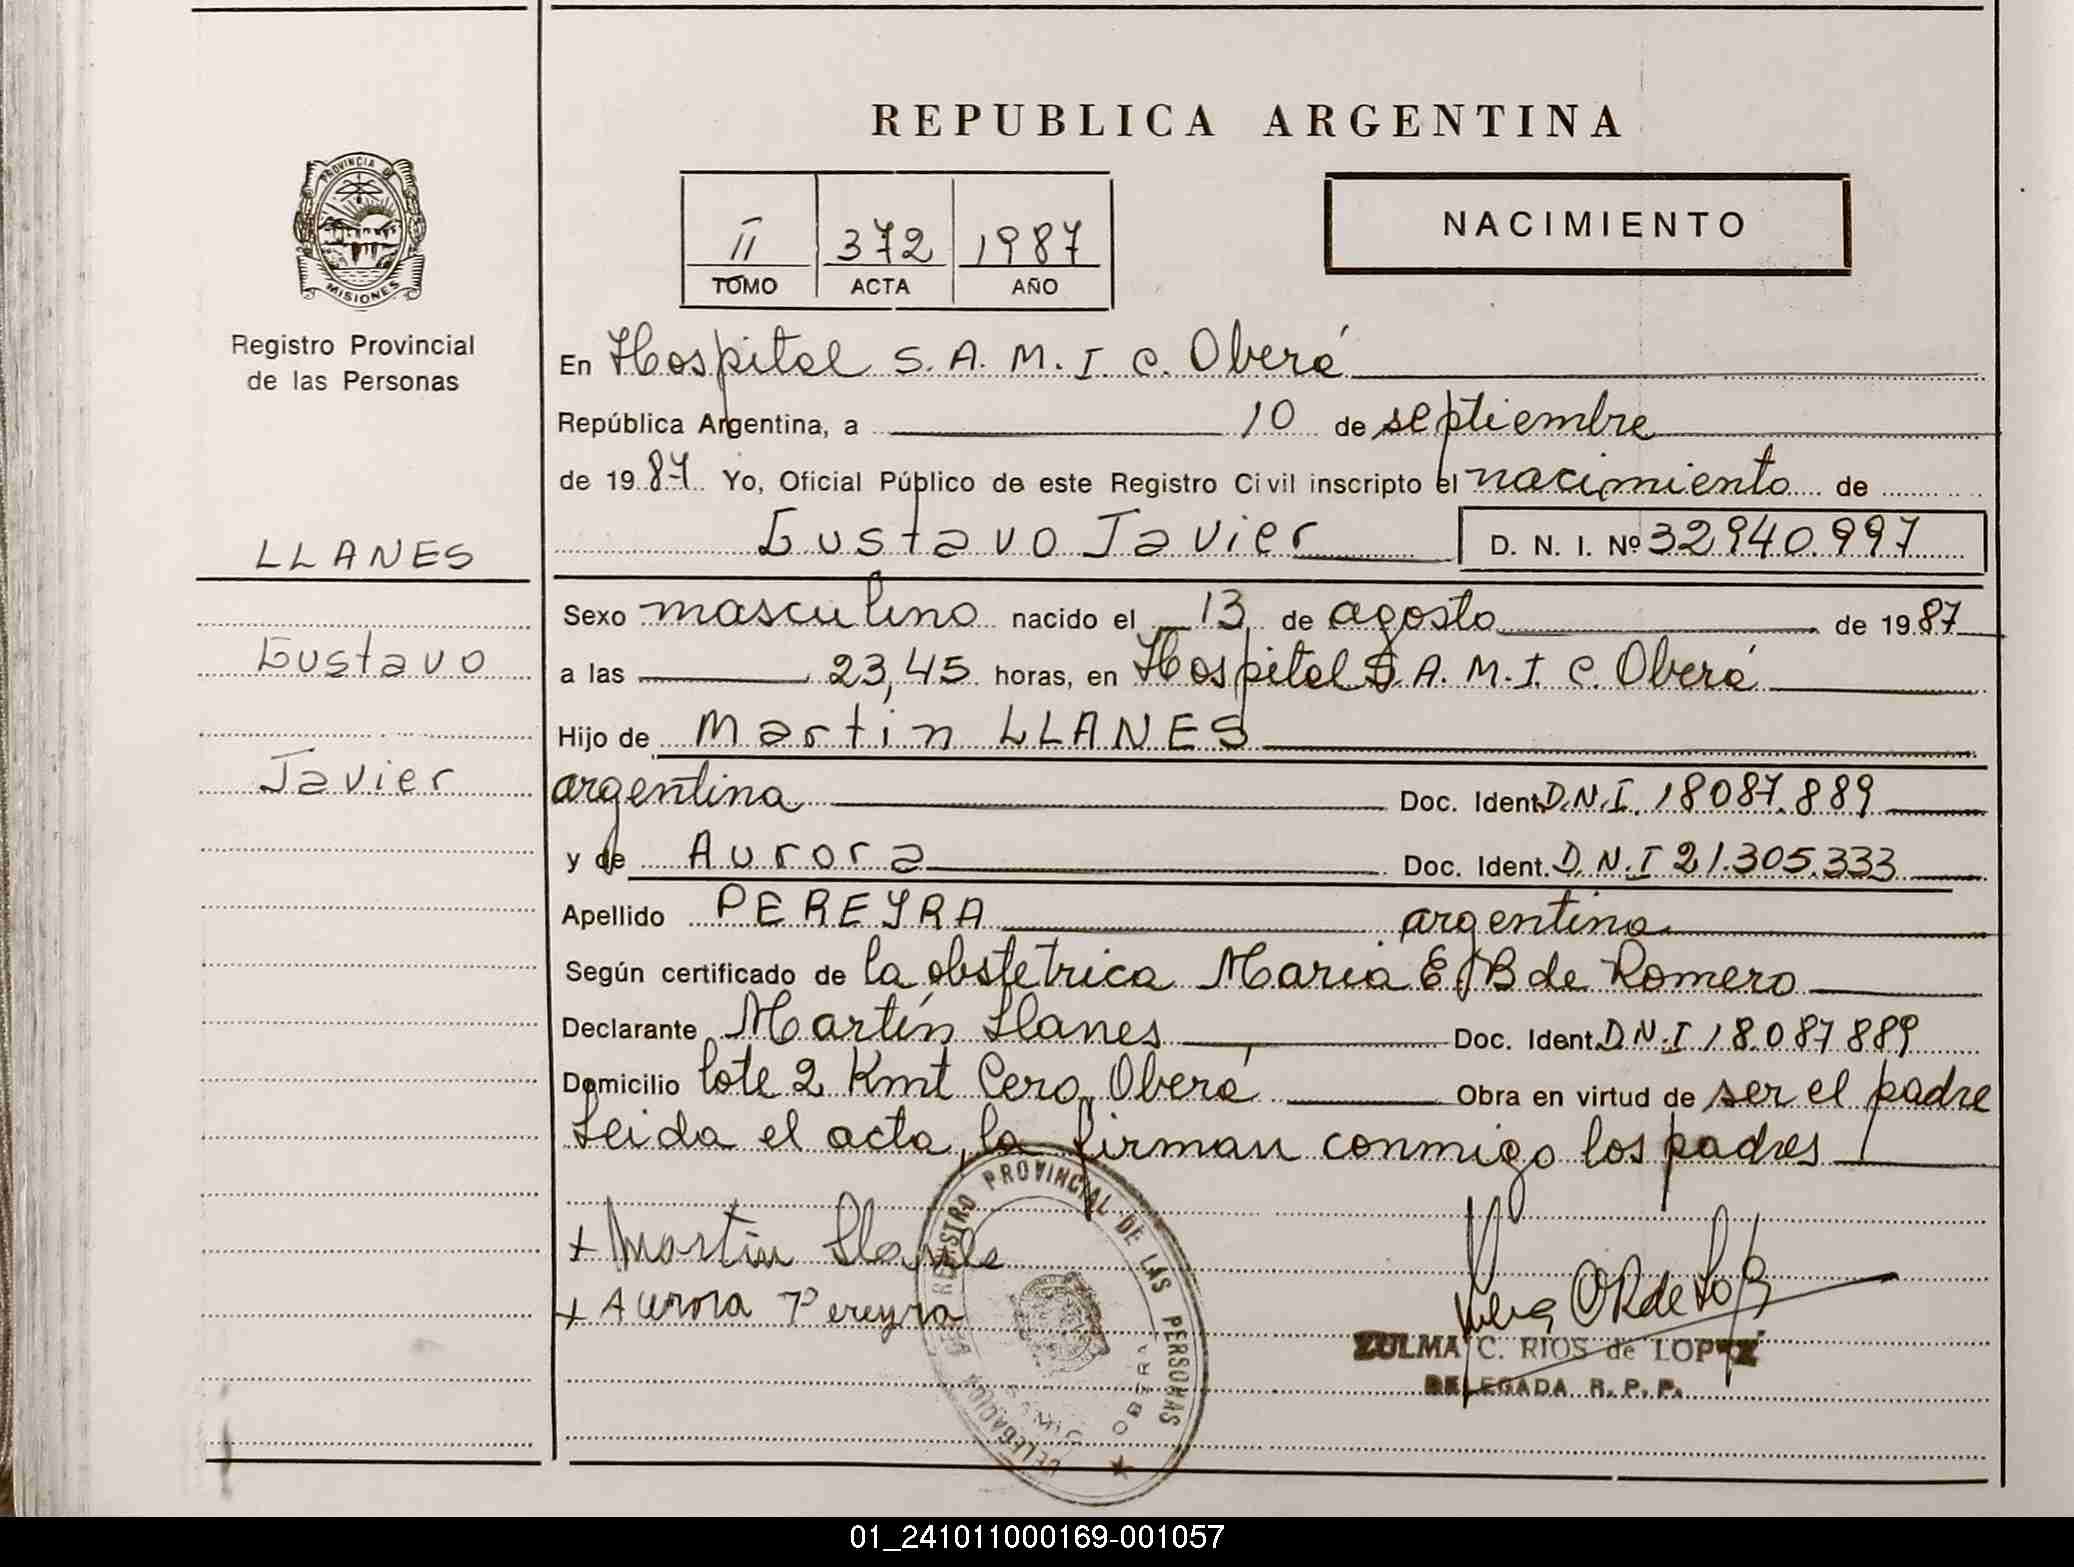 REPUBLICA ARGENTINA
PROVINCIA DE
MISIONES
Registro Provincial
de las Personas
II 372 1987
TOMO ACTA AÑO
NACIMIENTO
En Hospital S. A. M. I. C. Oberá
República Argentina, a 10 de septiembre
de 1987 Yo, Oficial Público de este Registro Civil inscripto el nacimiento de
Gustavo Javier D. N. I. Nº 32940.997
LLANES
Gustavo
Javier
Sexo masculino nacido el 13 de agosto de 1987
a las 23,45 horas, en Hospital S. A. M. I. C. Oberá
Hijo de Martin LLANES
argentina Doc. Ident. D.N.I. 18087.889
y de Aurora Doc. Ident. D.N.I 21.305.333
Apellido PEREYRA argentina
Según certificado de la obstetrica Maria E B de Romero
Declarante Martín Llanes Doc. Ident. D.N.I 18.087889
Domicilio lote 2 Kmt Cero Oberá Obra en virtud de ser el padre
Leida el acta, la firman conmigo los padres
+ Martin Llanes
+ Aurora Pereyra
REGISTRO PROVINCIAL DE LAS PERSONAS
DELEGACION
OBERA
ZULMA C. RIOS de LOPEZ
DELEGADA R. P. P.
01_241011000169-001057